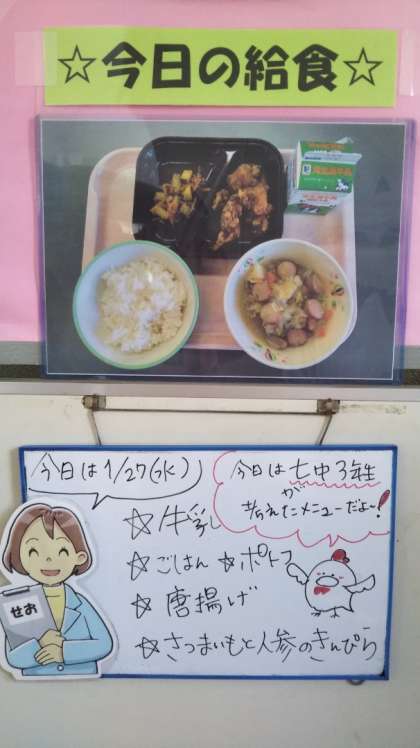 ☆今日の給食☆
今日は1/27(水)
今日は七中3年生
が
考えたメニューだよ~!
☆牛乳
☆ごはん ☆ポトフ
☆唐揚げ
☆さつまいもと人参のきんぴら
せお